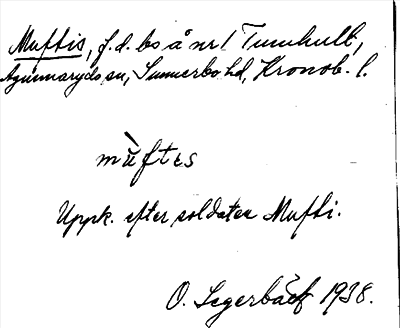 Muftis, f.d. bs å nr 1 Tunnhult,
Agunnaryds sn, Sunnerbo hd, Kronob. l.
mùftes
Uppk. efter soldaten Mufti.
O. Segerbäck 1938.